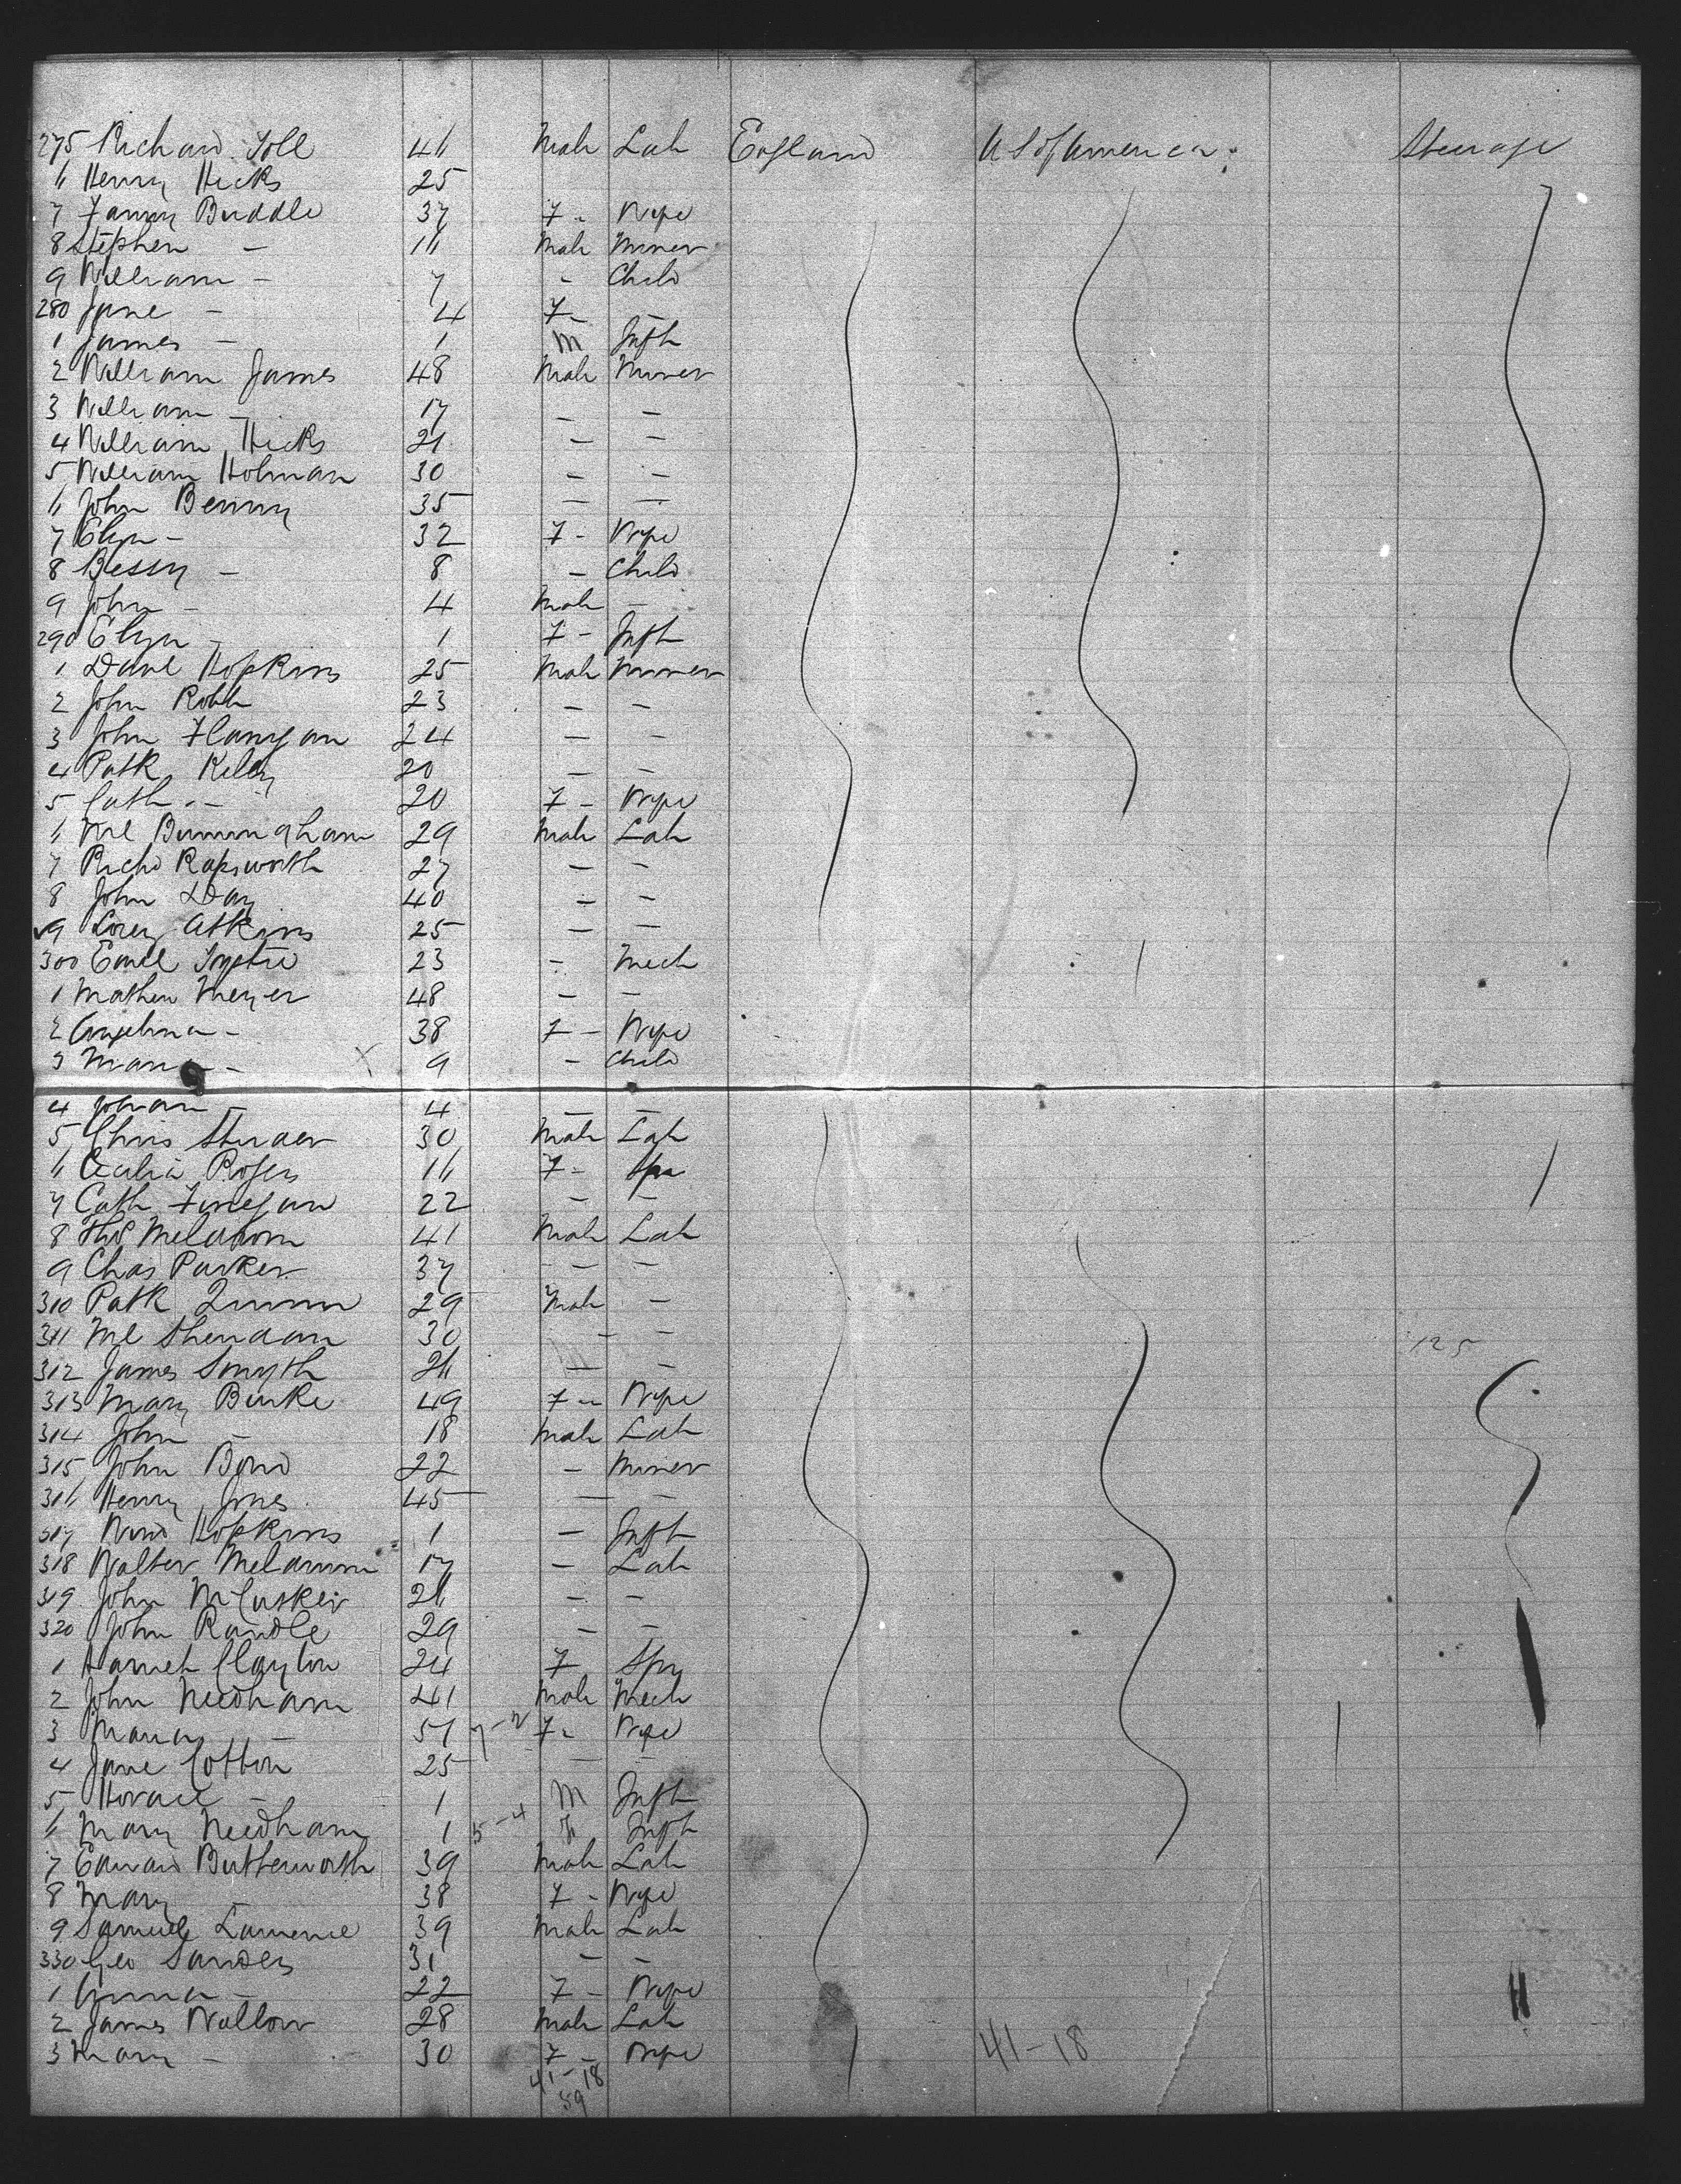 275 Richard Toll 46 Male Lab England U S of America Steerage
6 Henry Hicks 25
7 Fanny Buddle 37 F - Wife
8 Stephen - 16 Male Miner
9 William - 7 - Child
280 Jane - 4 F - -
1 James - 1 M Inft
2 William James 48 Male Miner
3 William - 17 - -
4 William Hicks 21 - -
5 William Holman 30 - -
6 John Benny 35 - -
7 Eliza - 32 F - Wife
8 Bessy - 8 - Child
9 John - 4 Male -
290 Eliza - 1 F - Inft
1 Davl Hopkins 25 Male Miner
2 John Robb 23 - -
3 John Flanigan 24 - -
4 Patk Kiley 20 - -
5 Cath - 20 F - Wife
6 Ml Burmingham 29 Male Lab
7 Richd Rapsworth 27 - -
8 John Day 40 - -
9 Atkins 25 - -
300 Emil 23 - Mech
1 Mathew Meyer 48 - -
2 Angelina - 38 F - Wife
3 Maria - X 9 - Child
4 - 4 - -
5 Chris 30 Male Lab
6 Cecilia Rogers 16 F - Spr
7 Cath Finegan 22 - -
8 Thos 41 Male Lab
9 Chas Parker 37 - -
310 Patk Quinn 29 Male -
311 Ml Sheridan 30 - - 125
312 James Smyth 26 - -
313 Mary Burke 49 F - Wife
314 John - 18 Male Lab
315 John Bond 22 - Miner
316 Henry Jones 45 - -
317 Hopkins 1 - Inft
318 Walter 17 - Lab
319 John McCusker 26 - -
320 John Randle 29 - -
1 Harriet Clayton 24 F Spr
2 John Needham 41 Male Mech
3 Maria - 51 7-2 F - Wife
4 Jane Cotton 25 - -
5 Horace - 1 M Inft
6 Mary Needham 1 5-4 F Inft
7 Edward Butterworth 39 Male Lab
8 Mary - 38 F - Wife
9 Samuel Lawrence 39 Male Lab
330 Geo Sanders 31 - -
1 Anna - 22 F - Wife
2 James Wallow 28 Male Lab
3 Mary - 30 F - Wife 41-18
41-18
59